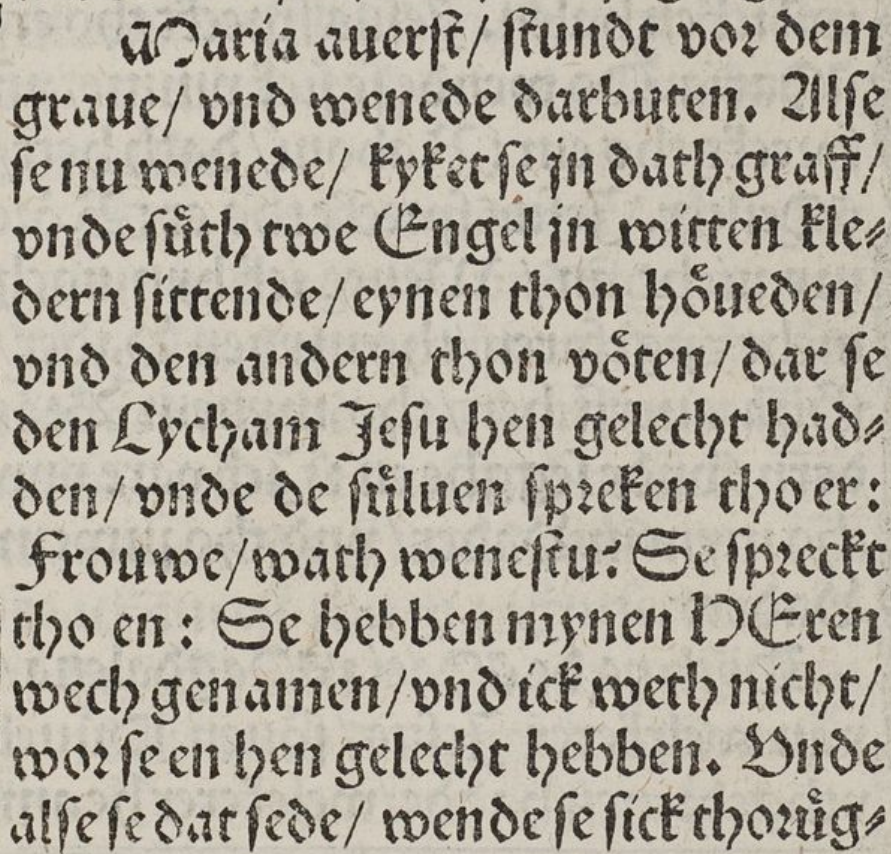 Maria auerſt/ ſtundt vor dem
graue/ vnd wenede darbuten. Alſe
ſe nu wenede/ kyket ſe jn dath graff/
vnde ſuͤth twe Engel jn witten kle⸗
dern ſittende/ eynen thon hoͤueden/
vnd den andern thon voͤten/ dar ſe
den Lycham Jeſu hen gelecht had⸗
den/ vnde de ſuͤluen ſpreken tho er:
Frouwe/ wath weneſtu? Se ſpreckt
tho en: Se hebben mynen HEren
wech genamen/ vnd ick weth nicht/
wor ſe en hen gelecht hebben. Vnde
alſe ſe dat ſede/ wende ſe ſick thoruͤg⸗